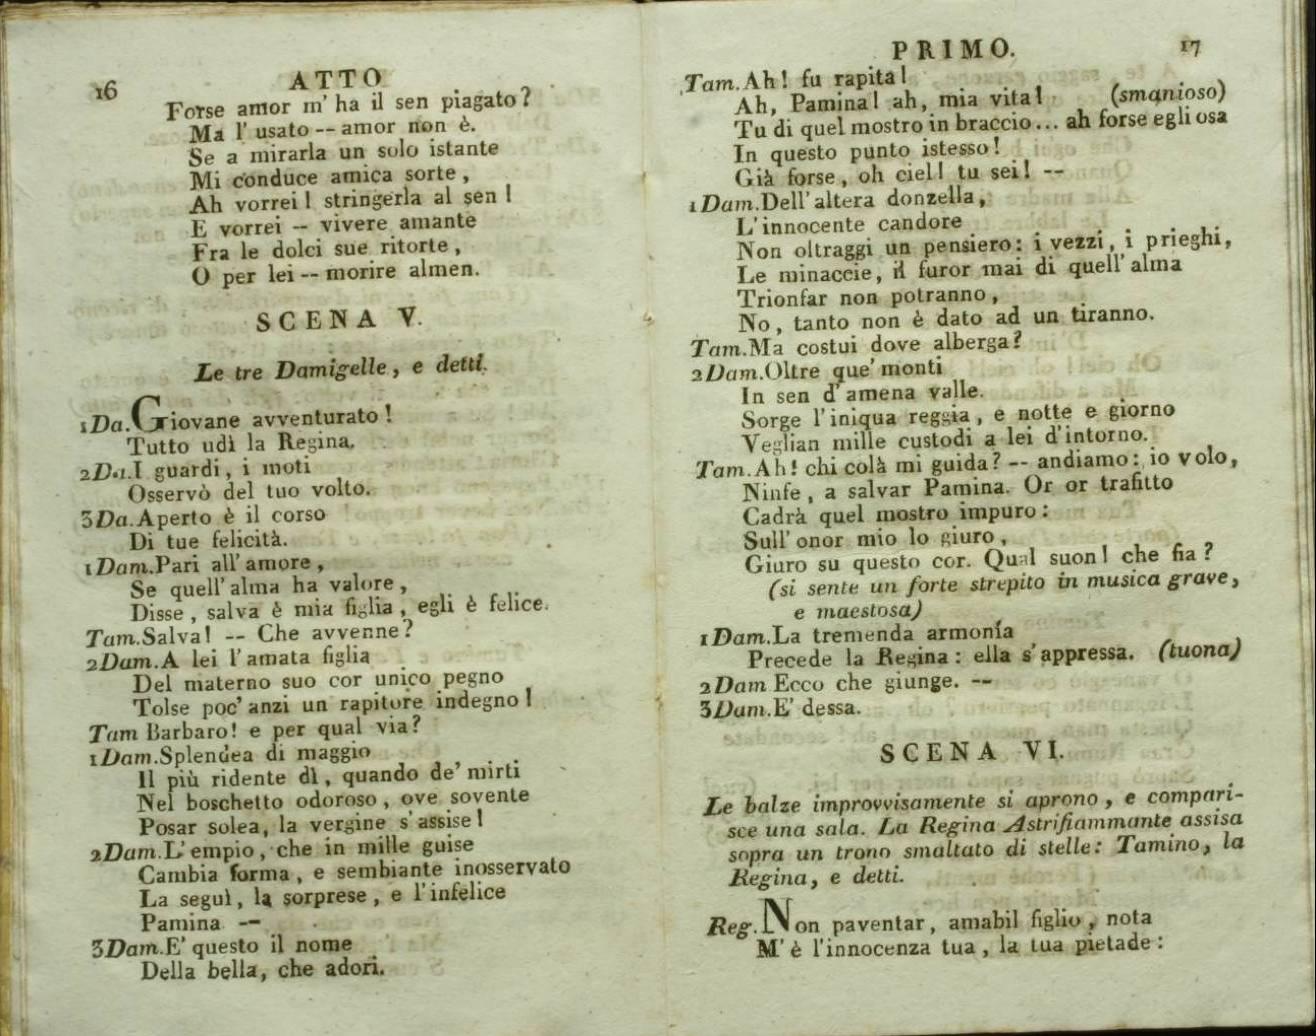 16
ATTO
Forse amor m' ha il sen piagato?
Ma l' usato -- amor non è.
Se a mirarla un solo istante
Mi conduce amica sorte,
Ah vorrei! stringerla al sen!
E vorrei -- vivere amante
Fra le dolci sue ritorte,
O per lei -- morire almen.
SCENA V.
Le tre Damigelle, e detti.
1Da. Giovane avventurato!
Tutto udì la Regina.
2Da. I guardi, i moti
Osservò del tuo volto.
3Da. Aperto è il corso
Di tue felicità.
1Dam. Pari all' amore,
Se quell' alma ha valore,
Disse, salva è mia figlia, egli è felice.
Tam. Salva! -- Che avvenne?
2Dam. A lei l' amata figlia
Del materno suo cor unico pegno
Tolse poc' anzi un rapitore indegno!
Tam Barbaro! e per qual via?
1Dam. Splendea di maggio
Il più ridente dì, quando de' mirti
Nel boschetto odoroso, ove sovente
Posar solea, la vergine s' assise!
2Dam. L' empio, che in mille guise
Cambia forma, e sembiante inosservato
La seguì, la sorprese, e l' infelice
Pamina --
3Dam. E' questo il nome
Della bella, che adori.
PRIMO.
17
Tam. Ah! fu rapita!
Ah, Pamina! ah, mia vita! (smanioso)
Tu di quel mostro in braccio... ah forse egli osa
In questo punto istesso!
Già forse, oh ciel! tu sei! --
1Dam. Dell' altera donzella,
L' innocente candore
Non oltraggi un pensiero: i vezzi, i prieghi,
Le minaccie, il furor mai di quell' alma
Trionfar non potranno,
No, tanto non è dato ad un tiranno.
Tam. Ma costui dove alberga?
2Dam. Oltre que' monti
In sen d' amena valle.
Sorge l' iniqua reggia, e notte e giorno
Veglian mille custodi a lei d' intorno.
Tam. Ah! chi colà mi guida? -- andiamo: io volo,
Ninfe, a salvar Pamina. Or or trafitto
Cadrà quel mostro impuro:
Sull' onor mio lo giuro,
Giuro su questo cor. Qual suon! che fia?
(si sente un forte strepito in musica grave,
e maestosa)
1Dam. La tremenda armonía
Precede la Regina: ella s' appressa. (tuona)
2Dam Ecco che giunge. --
3Dam. E' dessa.
SCENA VI.
Le balze improvvisamente si aprono, e compari-
sce una sala. La Regina Astrifiammante assisa
sopra un trono smaltato di stelle: Tamino, la
Regina, e detti.
Reg. Non paventar, amabil figlio, nota
M' è l' innocenza tua, la tua pietade: